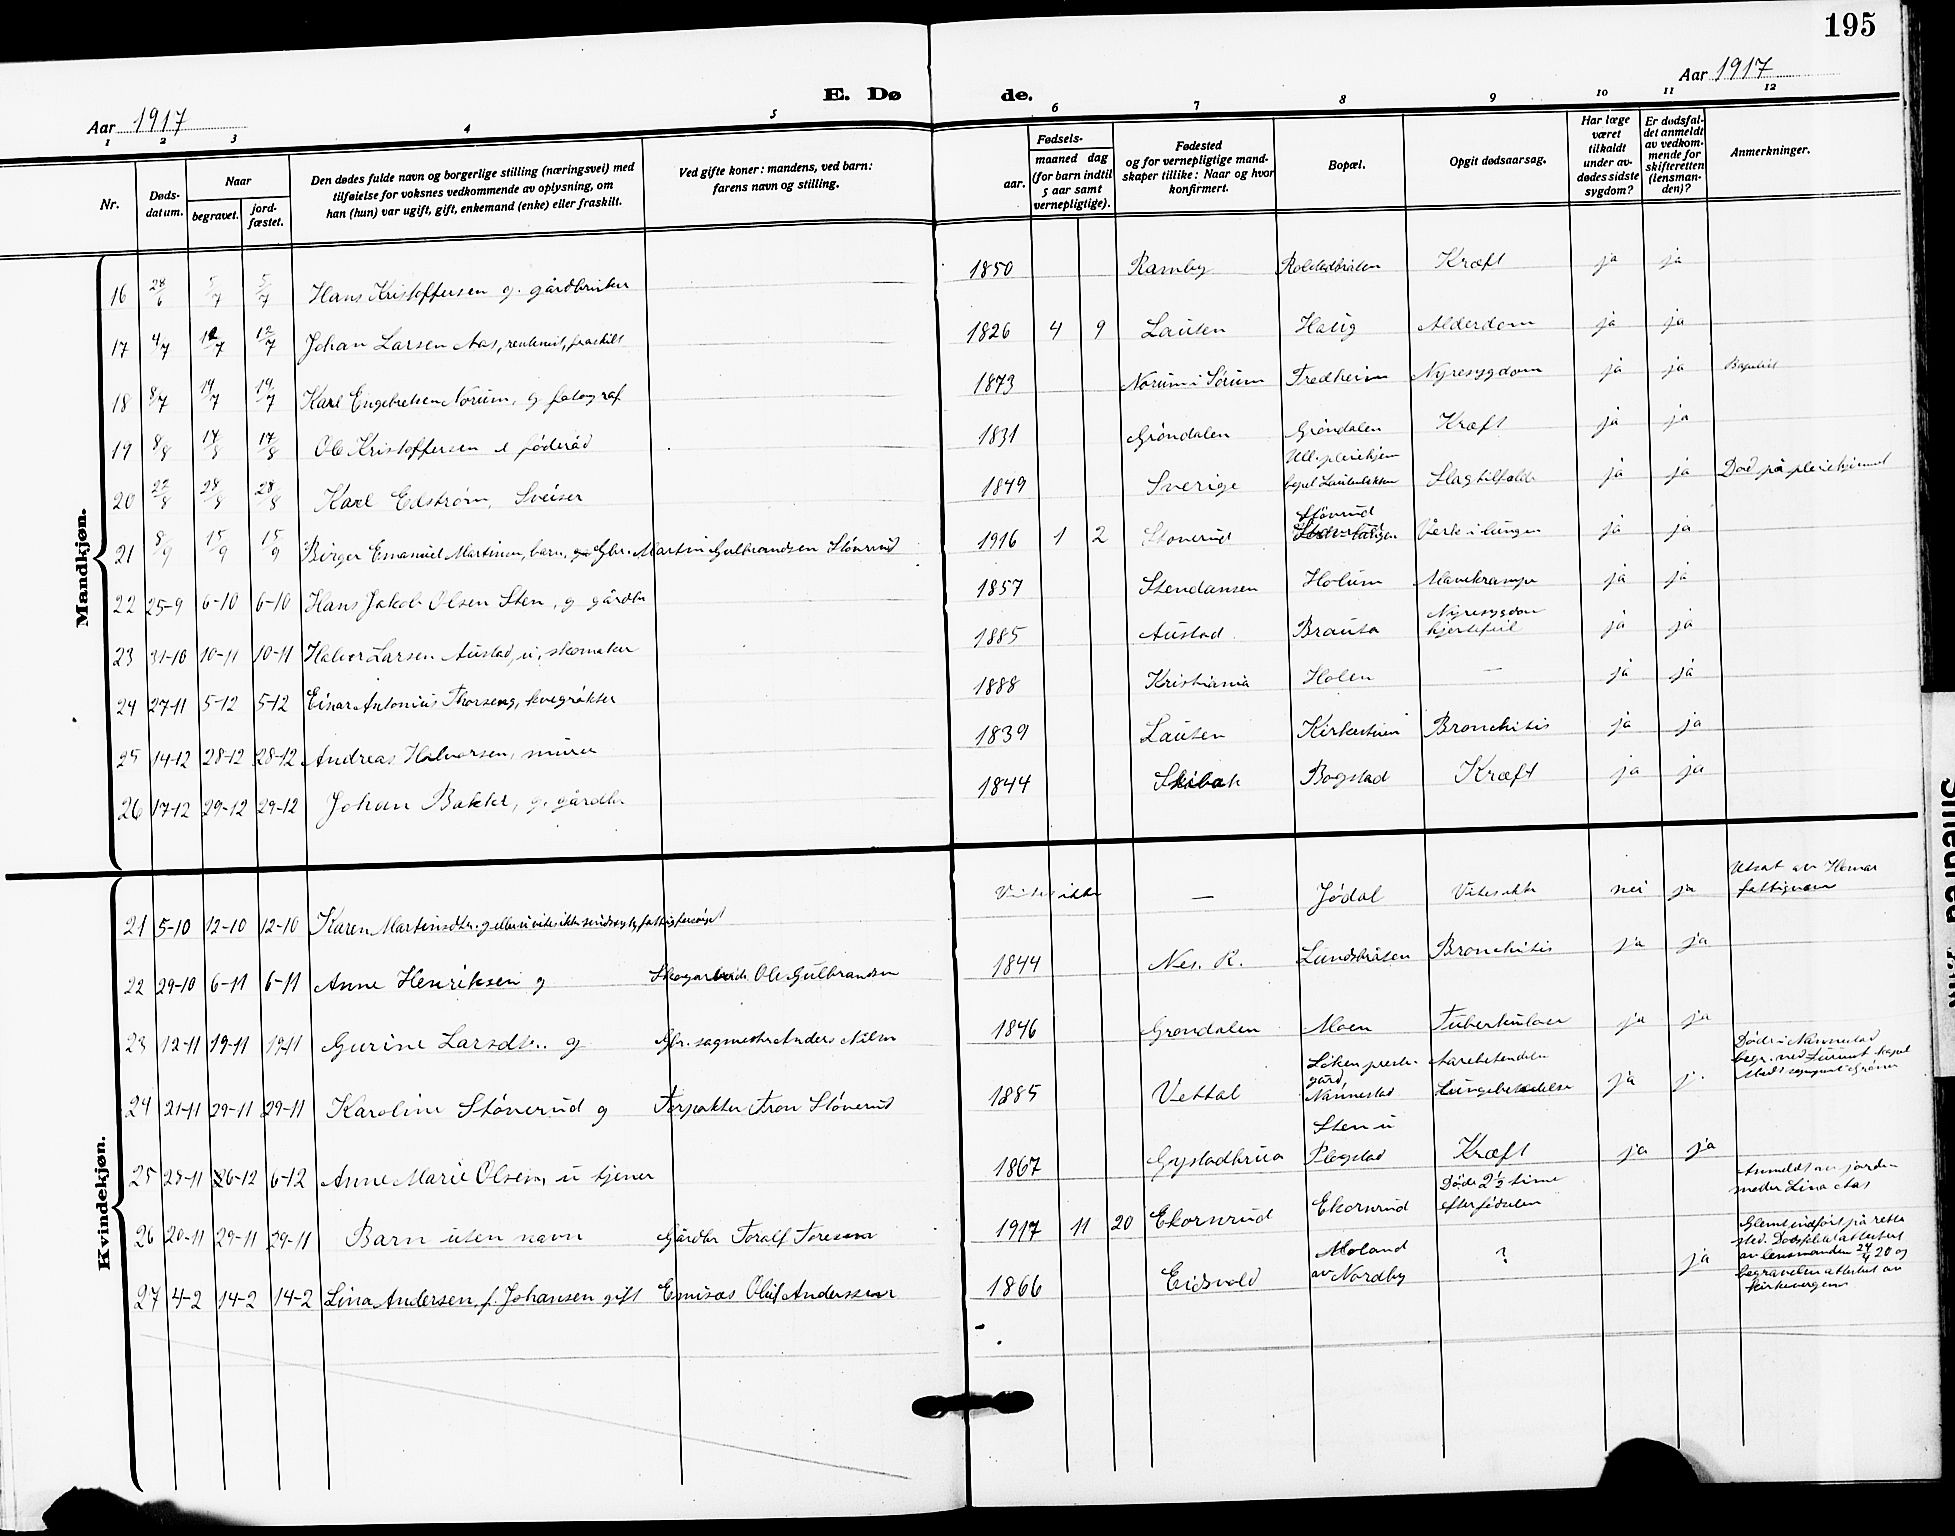 195
Aar 1917
Aar 1917
E. Dø de.
1 2 3 4 5 6 7 8 9 10 11 12
Nr.
Døds-
datum.
Naar
begravet.
jord-
fæstet.
Den dødes fulde navn og borgerlige stilling (næringsvei) med
tilføielse for voksnes vedkommende av oplysning, om
han (hun) var ugift, gift, enkemand (enke) eller fraskilt.
Ved gifte koner: mandens, ved barn:
farens navn og stilling.
Fødsels-
aar.
maaned dag
(for barn indtil
5 aar samt
vernepligtige).
Fødested
og for vernepligtige mand-
skaper tillike: Naar og hvor
konfirmert.
Bopæl.
Opgit dødsaarsag.
Har læge
været
tilkaldt
under av-
dødes sidste
sygdom?
Er dødsfal-
det anmeldt
av vedkom-
mende for
skifteretten
(lensman-
den)?
Anmerkninger.
Mandkjøn.
16 28/6 5/7 5/7 Hans Kristoffersen g. gårdbruker 1850 Ramby Kræft ja ja
17 4/7 12/7 12/7 Johan Larsen Aas, fraskilt 1826 4 9 Lauten Haug Alderdom ja ja
18 8/7 14/7 14/7 Karl Engebretsen Norum, g fotograf 1873 Norum i Sørum Fredheim Nyresygdom ja ja
19 8/8 17/8 17/8 Ole Kristoffersen e føderåd 1831 Grøndalen Grøndalen Kræft ja ja
20 22/8 28/8 28/8 Karl Edstrøm, Sveiser 1849 Sverige Ull. pleiehjem Slagtilfælde ja ja Død på pleiehjemmet
21 8/9 15/9 15/9 Birger Emanuel Martinsen, barn, Gbr. Martin Gulbrandsen Stønerud 1916 1 2 Stonerud Stønrud Verk i lungen ja ja
22 25-9 6-10 6-10 Hans Jakob Olsen Sten, g gårdbr 1857 Stendansen Holum Mavekrampe ja ja
23 31-10 10-11 10-11 Halvor Larsen Austad, u. skomaker 1885 Austad Brauta Nyresygdom
hjertefeil ja ja
24 27-11 5-12 5-12 Einar Antonius Thorseng, kvegrøkter 1888 Kristiania Holen — ja ja
25 14-12 28-12 28-12 Andreas Halvorsen, murer 1839 Lauten Bronchitis ja ja
26 17-12 29-12 29-12 Johan Bakker, g. gårdbr 1844 Bogstad Kræft ja ja
Kvindekjøn.
21 5-10 12-10 12-10 Karen Martinsdtr. g eller u vites ikke sindssyg, fattigforsørget Vites ikke — Jødal Vites ikke nei ja Utsat av Hemar
fattigvæsen
22 29-10 6-11 6-11 Anne Henriksen g Skogarbeid. Ole Gulbrandsen 1844 Nes. R. Lundsbråten Bronchitis ja ja
23 12-11 19-11 19-11 Gurine Larsdtr. g Gbr. sagmester Anders Nilsen 1846 Grøndalen Moen Tuberkulose ja ja
24 21-11 29-11 29-11 Karoline Stønerud g Forpakter Tron Stønerud 1885 Vettal Løken preste-
gård
Nannestad Aarebetendelse
Lungebetændelse ja j. Døde i Nannestad
begr. ved Furuset kapel
25 25-11 6-12 6-12 Anne Marie Olsen, u tjener 1867 Gystadbrua Sten u
Plogstad Kræft ja ja Anmeldt av jorde-
moder Lina Aas
26 20-11 29-11 29-11 Barn uten navn Gårdbr Toralf Toresen 1917 11 20 Ekornrud Ekornrud Døde 2½ time
efter fødselen
27 4-2 14-2 14-2 Lina Andersen f. Johansen gift Emisær Oluf Anderssen 1866 Eidsvold Moland
av Nordby ? ja Glemt indført på rette
sted. Dødsfaldet attestert
av lensmanden 24/4 20 og
begravelsen attestert av
kirkevergen